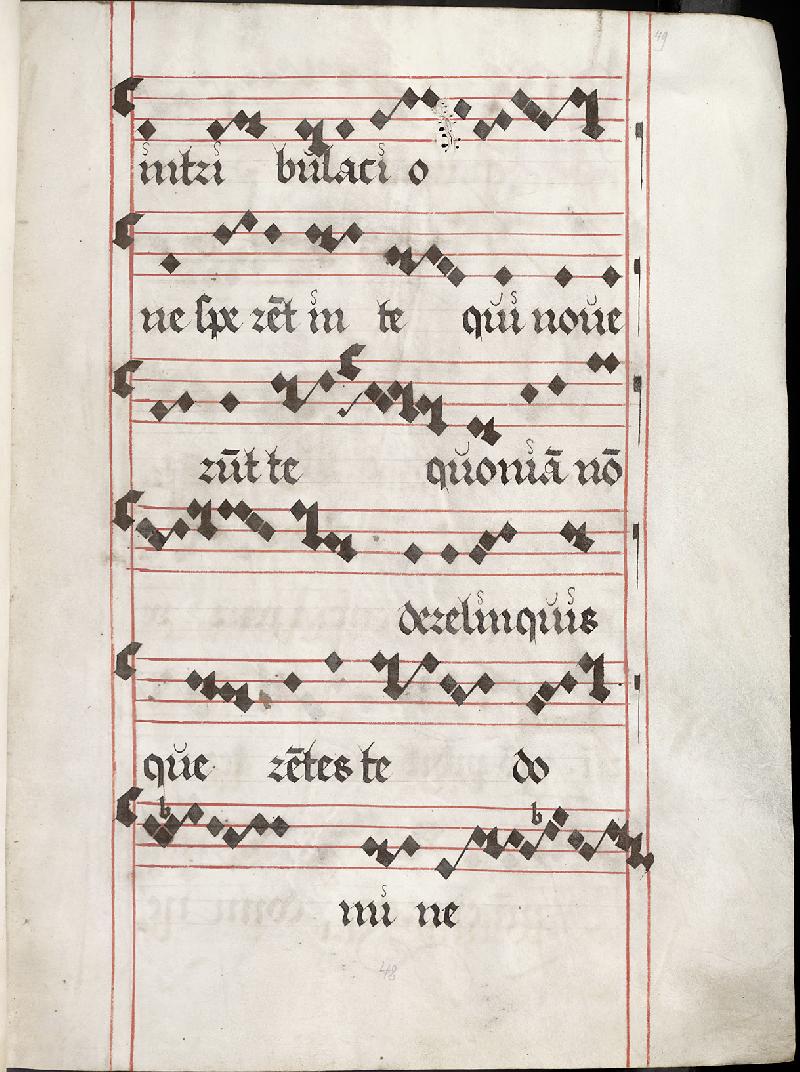 49
in tri bulaci o
ne spe rēt in te qui noue
rūt te quoniā nō
derelinquis
que rētes te do
b b
mi ne
48